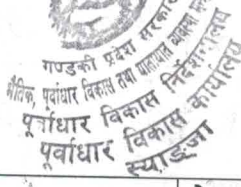 गण्डकी प्रदेश सरकार
भौतिक, पूर्वाधार विकास तथा यातायात व्यवस्था
पूर्वाधार विकास निर्देशनालय
पूर्वाधार विकास कार्यालय
स्याङ्जा